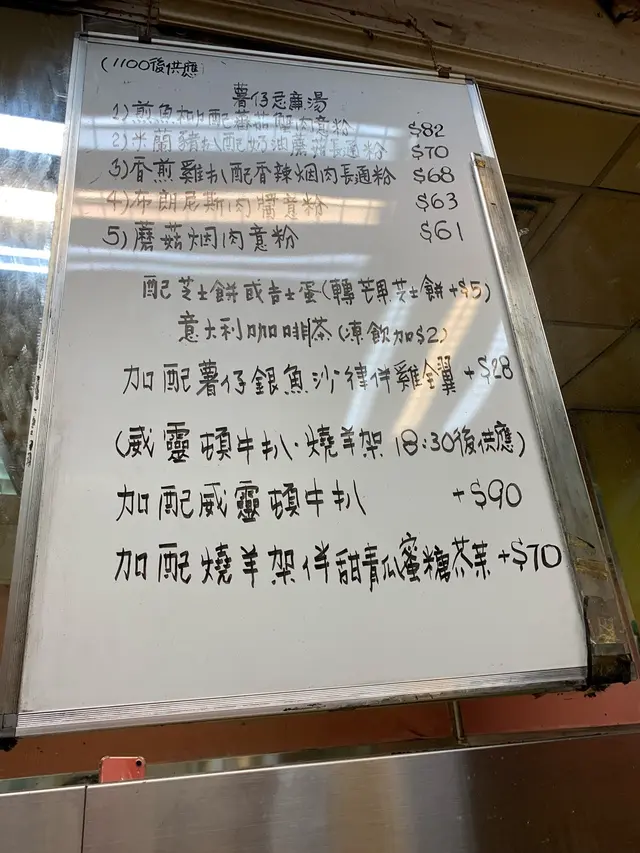 (1100後供應)
薯仔忌廉湯
1)煎魚柳配蕃茄蟹肉意粉 $82
2)米蘭豬扒配奶油蘑菇長通粉 $70
3)香煎雞扒配香辣烟肉長通粉 $68
4)布朗尼斯肉醬意粉 $63
5)蘑菇烟肉意粉 $61
配芝士餅或吉士蛋(轉芒果芝士餅+$5)
意大利咖啡茶(凍飲加$2)
加配薯仔銀魚沙律伴雞全翼 +$28
(威靈頓牛扒·燒羊架 18:30後供應)
加配威靈頓牛扒 +$90
加配燒羊架伴甜青瓜蜜糖芥茉 +$70